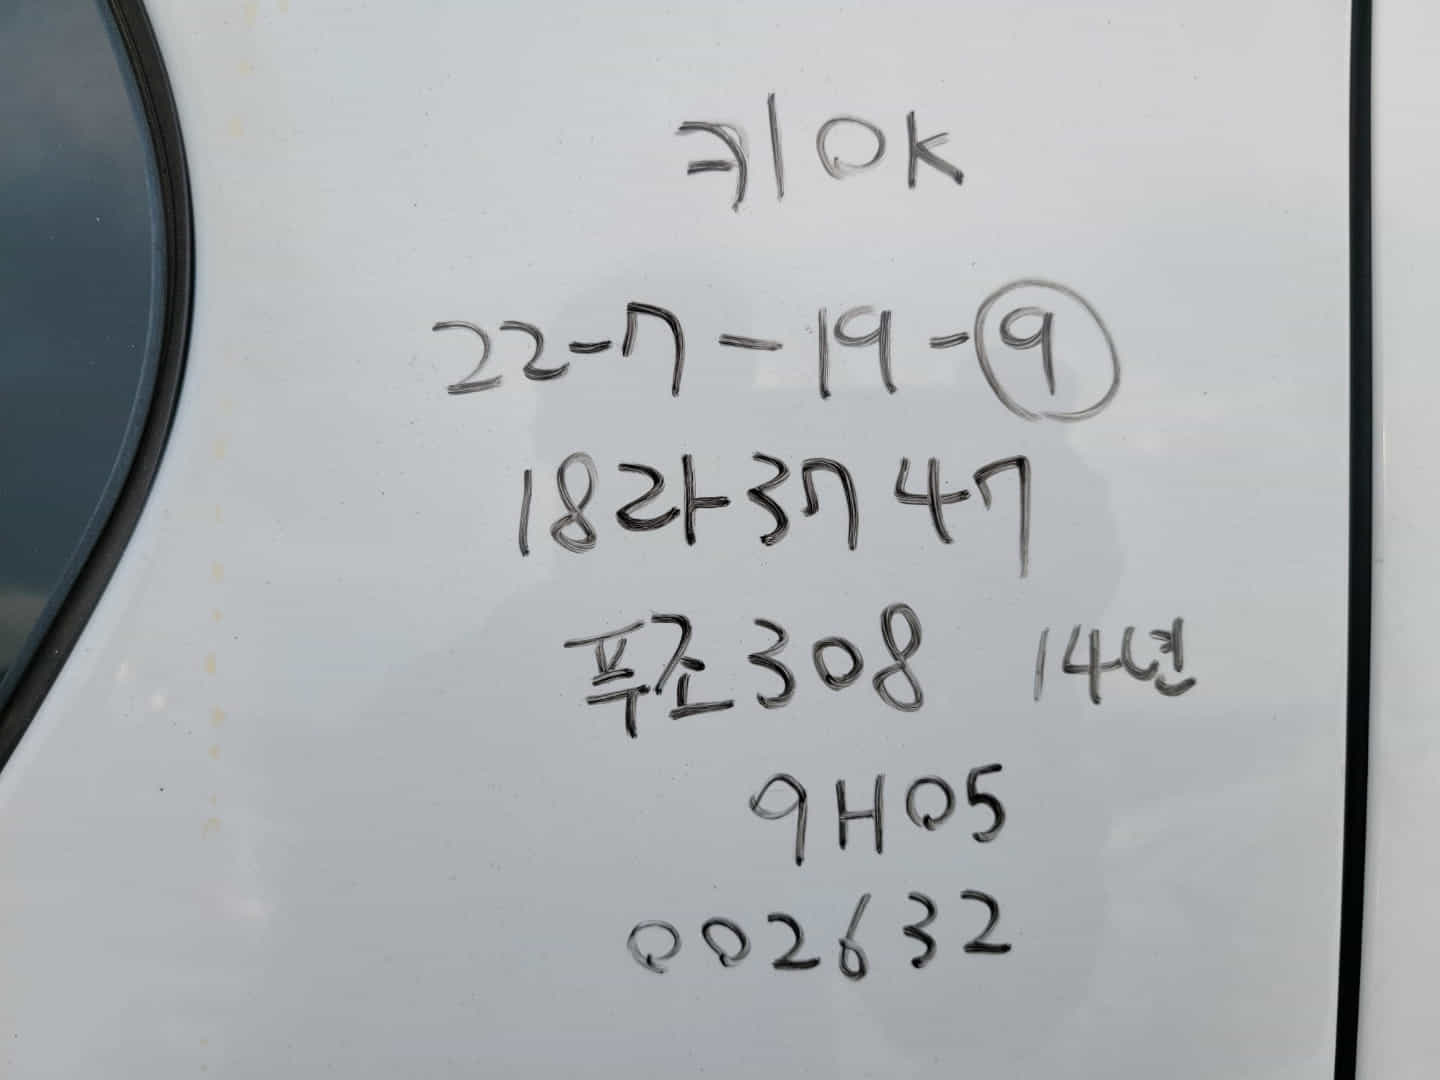 키 OK
22-7-19-⑨
18라3747
푸조308 14년
9H05
002632